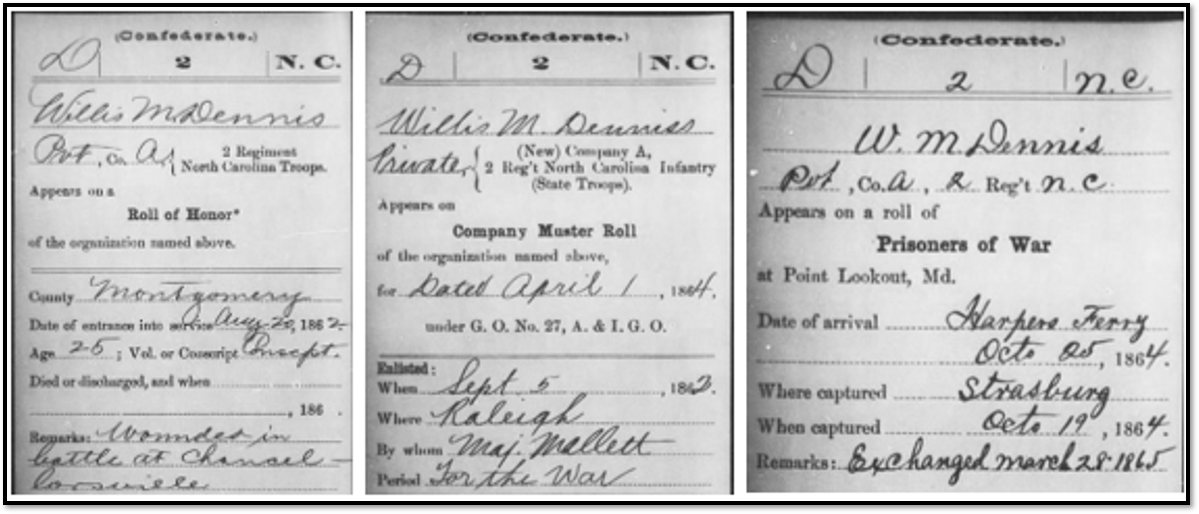 (Confederate.)
D | 2 | N. C.
Willis M Dennis
Pvt, Co. A, { 2 Regiment
North Carolina Troops.
Appears on a
Roll of Honor*
of the organization named above.
County Montgomery
Date of entrance into service Aug 20, 1862.
Age 25; Vol. or Conscript Conscpt.
Died or discharged, and when
, 186 .
Remarks: Wounded in
battle at Chancel-
lorsville
(Confederate.)
D | 2 | N. C.
Willis M. Denniss
Private, { (New) Company A,
2 Reg't North Carolina Infantry
(State Troops).
Appears on
Company Muster Roll
of the organization named above,
for Dated April 1, 1864.
under G. O. No. 27, A. & I. G. O.
Enlisted:
When Sept 5, 1862.
Where Raleigh
By whom Maj. Mallett
Period For the War
(Confederate.)
D | 2 | N. C.
W. M Dennis
Pvt, Co. A, 2 Reg't N. C.
Appears on a roll of
Prisoners of War
at Point Lookout, Md.
Date of arrival Harpers Ferry
Octo 25, 1864.
Where captured Strasburg
When captured Octo 19, 1864.
Remarks: Exchanged March 28-1865